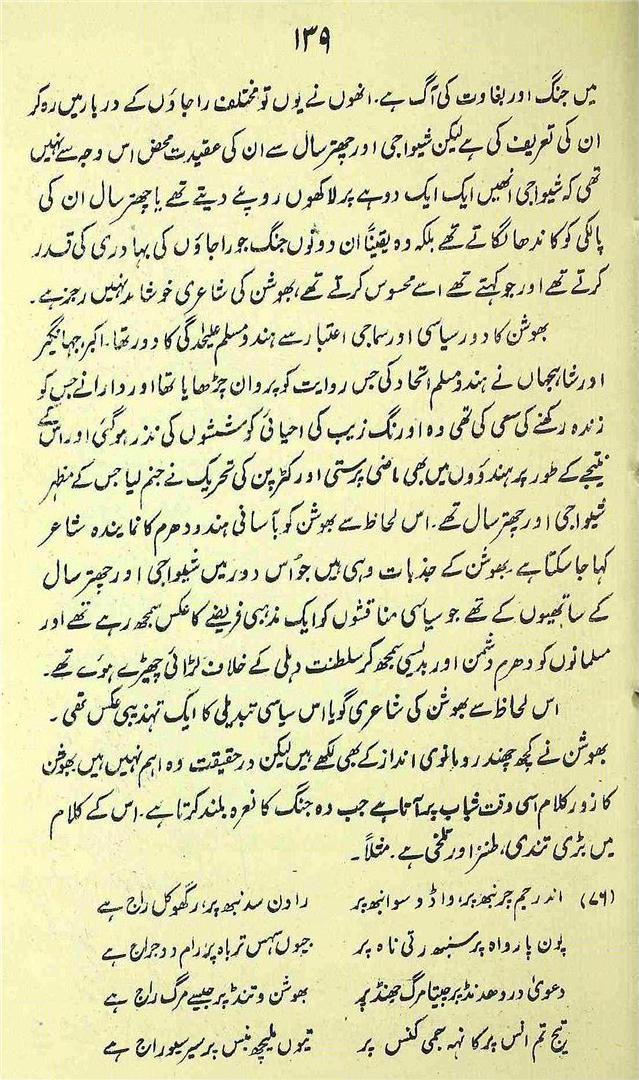 ۱۳۹
میں جنگ اور بغاوت کی آگ ہے. انھوں نے یوں تو مختلف راجاؤں کے دربار میں رہ کر
ان کی تعریف کی ہے لیکن شیواجی اور چھترسال سے ان کی عقیدت محض اس وجہ سے نہیں
تھی کہ شیواجی انھیں ایک ایک دوہے پر لاکھوں روپئے دیتے تھے یا چھترسال ان کی
پالکی کو کاندھا لگاتے تھے بلکہ وہ یقیناً ان دونوں جنگ جو راجاؤں کی بہادری کی قدر
کرتے تھے اور جو کہتے تھے اسے محسوس کرتے تھے، بھوشن کی شاعری خوشامد نہیں رجز ہے.
بھوشن کا دور سیاسی اور سماجی اعتبار سے ہندو مسلم علیحدگی کا دور تھا. اکبر، جہانگیر
اور شاہجہاں نے ہندو مسلم اتحاد کی جس روایت کو پروان چڑھایا تھا اور دارا نے جس کو
زندہ رکھنے کی سعی کی تھی وہ اورنگ زیب کی احیائی کوششوں کی نذر ہوگئی اور اس کے
نتیجے کے طور پر ہندوؤں میں بھی ماضی پرستی اور کٹرپن کی تحریک نے جنم لیا جس کے مظہر
شیواجی اور چھترسال تھے. اس لحاظ سے بھوشن کو بآسانی ہندو دھرم کا نمایندہ شاعر
کہا جا سکتا ہے بھوشن کے جذبات وہی ہیں جو اُس دور میں شیواجی اور چھترسال
کے ساتھیوں کے تھے جو سیاسی مناقشوں کو ایک مذہبی فریضے کا عکس سمجھ رہے تھے اور
مسلمانوں کو دھرم دشمن اور بدیسی سمجھ کر سلطنت دہلی کے خلاف لڑائی چھیڑے ہوئے تھے.
اس لحاظ سے بھوشن کی شاعری گویا اس سیاسی تبدیلی کا ایک تہذیبی عکس تھی.
بھوشن نے کچھ چھند رومانوی انداز کے بھی لکھے ہیں لیکن درحقیقت وہ اہم نہیں ہیں. بھوشن
کا زور کلام اسی وقت شباب پر آتا ہے جب وہ جنگ کا نعرہ بلند کرتا ہے. اس کے کلام
میں بڑی تندی، طنز اور تلخی ہے. مثلاً.
(۷۶) اندر جیم جرنبھ پر، واڈو سوانبھ پر راون سدنبھ پر، رگھوکل راج ہے
پون پارواہ پر سنبھ رتی ناہ پر جیوں سہس ترباہ پر رام دوجراج ہے
دعویٰ دروھدنڈ پر جیتا مرگ جھنڈ پر بھوشن وتنڈ پر جیسے مرگ راج ہے
تیج تم انس پر کانہہ جمی کنس پر تیوں ملیچھ بنس پر سیر سیوراج ہے